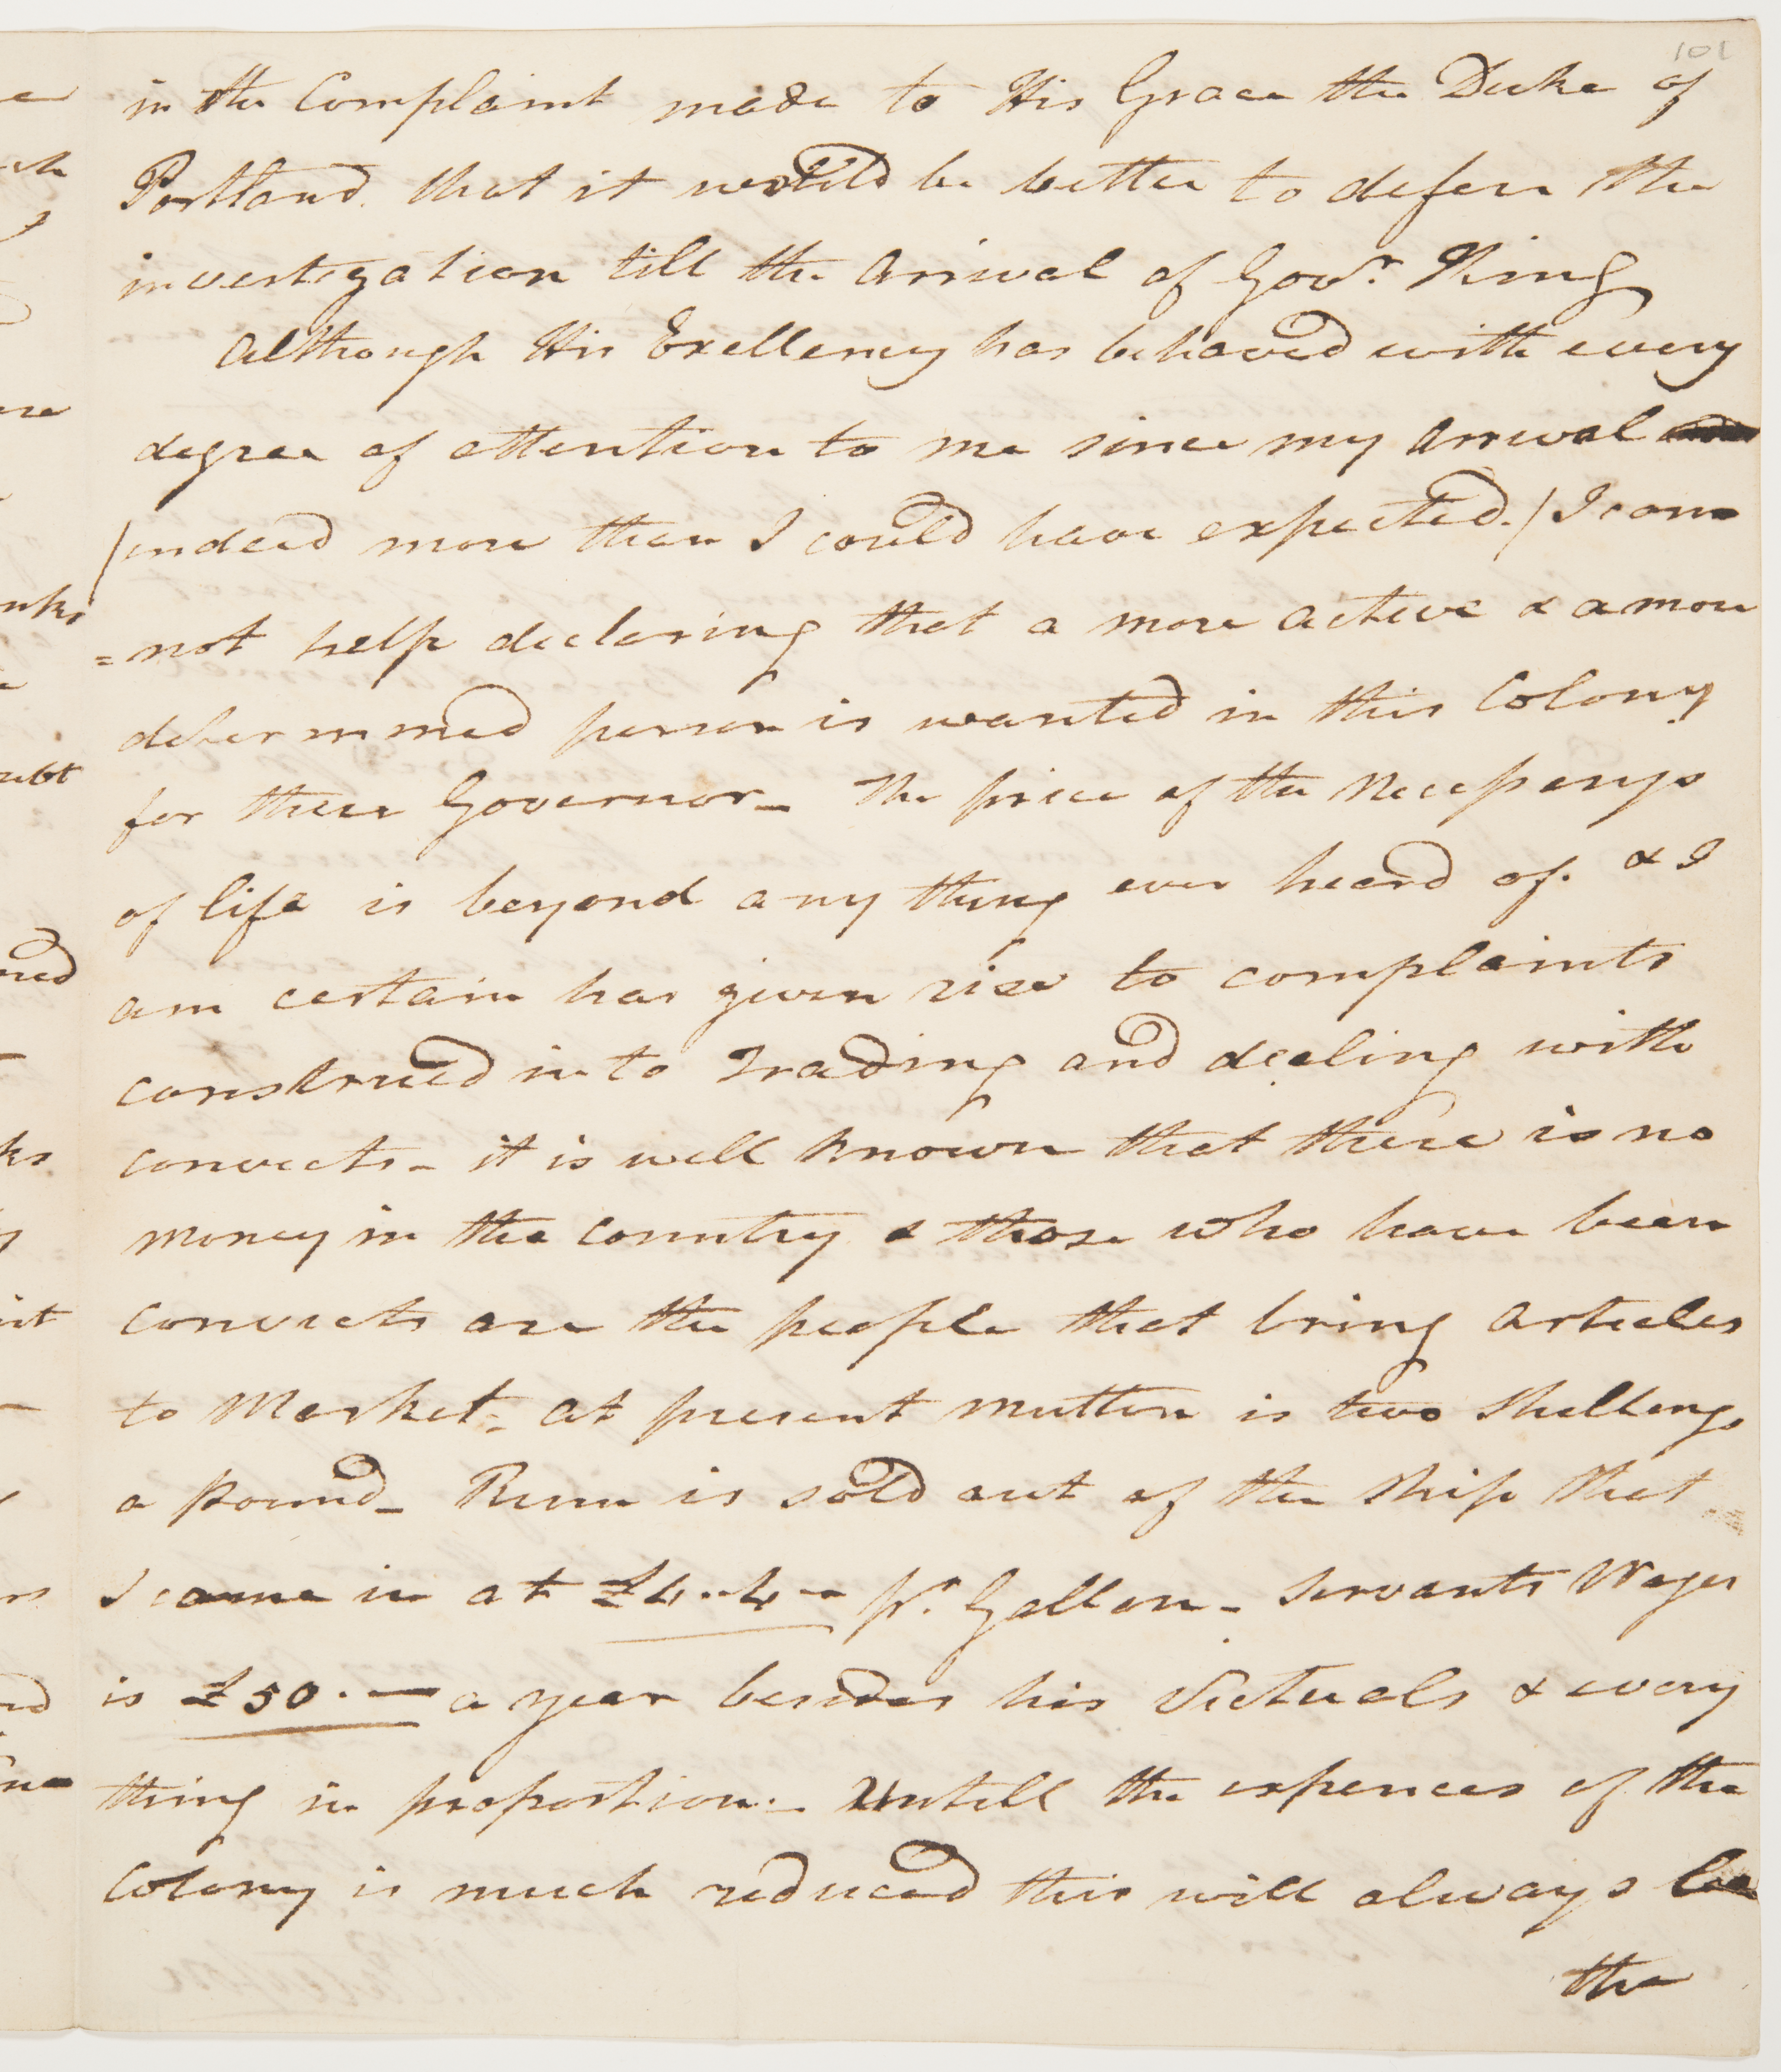 101
in the Complaint made to His Grace the Duke of
Portland. that it would be better to defere the
investigation till the Arrival of Govr. King
Although His Exellency has behaved with every
degree of attention to me since my Arrival
/indeed more than I could have expected./ I can
=not help declaring that a more active & a more
determined person is wanted in this Colony
for there Governor_ The price of the Necessarys
of life is beyond any thing ever heard of. & I
am certain has given rise to complaints
construed into Trading and dealing with
convicts_ it is well known that there is no
money in the country & those who have been
convicts are the people that bring Articles
to Market_ at present mutton is two Shillings
a Pound_ Rum is sold out of the Ship that
I came in at £4..4_ pr. Gallon_ Servants Wages
is £50._ a year besides his Victuals & every
thing in proportion._ Untill the expences of the
Colony is much reduced this will always be
the